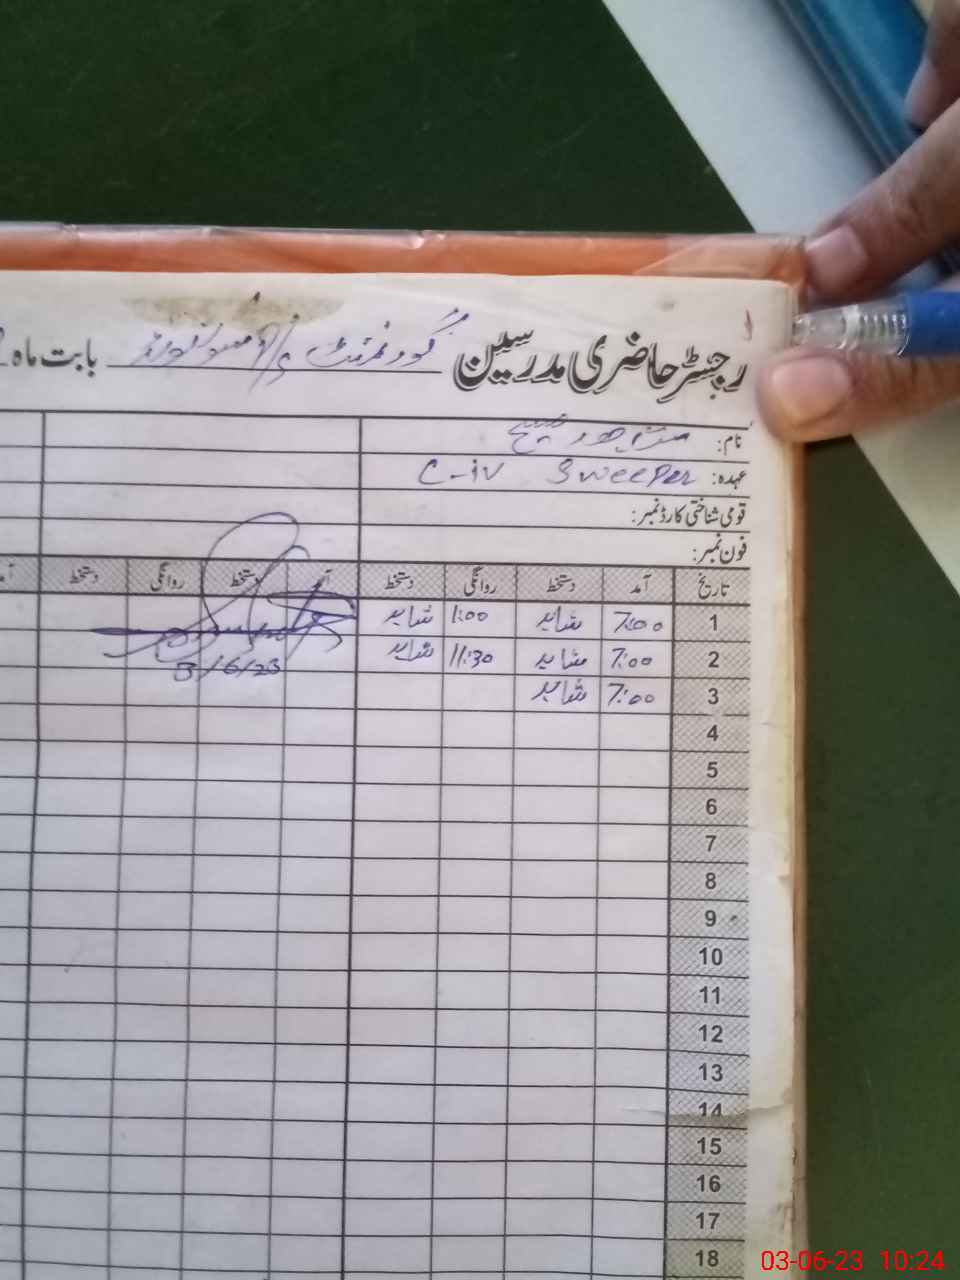 رجسٹر حاضری مدرسین گورنمنٹ بابت ماہ
نام: مسیح
عہدہ: C-iv Sweeper
قومی شناختی کارڈ نمبر:
فون نمبر:
تاریخ آمد دستخط روانگی دستخط آمد دستخط روانگی دستخط
1 7:00 شاہد 1:00 شاہد
2 7:00 شاہد 11:30 شاہد
3/6/23
3 7:00 شاہد
4
5
6
7
8
9
10
11
12
13
14
15
16
17
18
03-06-23 10:24